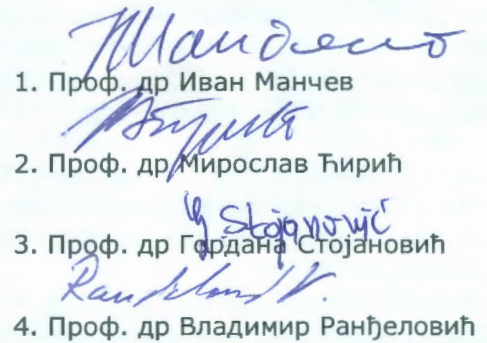 1. Проф. др Иван Манчев
2. Проф. др Мирослав Ћирић
G Stojanović
3. Проф. др Гордана Стојановић
4. Проф. др Владимир Ранђеловић